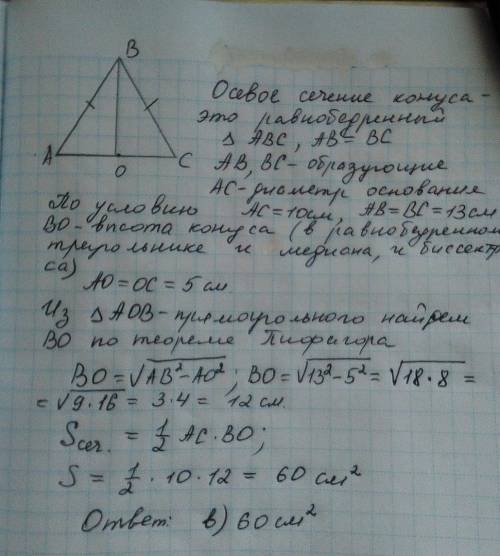 B
A
O
C
Осевое сечение конуса -
это равнобедренный
△ ABC, AB = BC
AB, BC - образующие
AC - диаметр основания
По условию AC = 10см, AB = BC = 13см
BO - высота конуса (в равнобедренном
треугольнике и медиана, и биссектри
са)
AO = OC = 5 см.
Из △ AOB - прямоугольного найдем
BO по теореме Пифагора
BO = √(AB² - AO²) ; BO = √(13² - 5²) = √(18 · 8) =
= √(9 · 16) = 3 · 4 = 12 см.
Sсеч. = 1/2 AC · BO;
S = 1/2 · 10 · 12 = 60 см²
Ответ: в) 60 см²